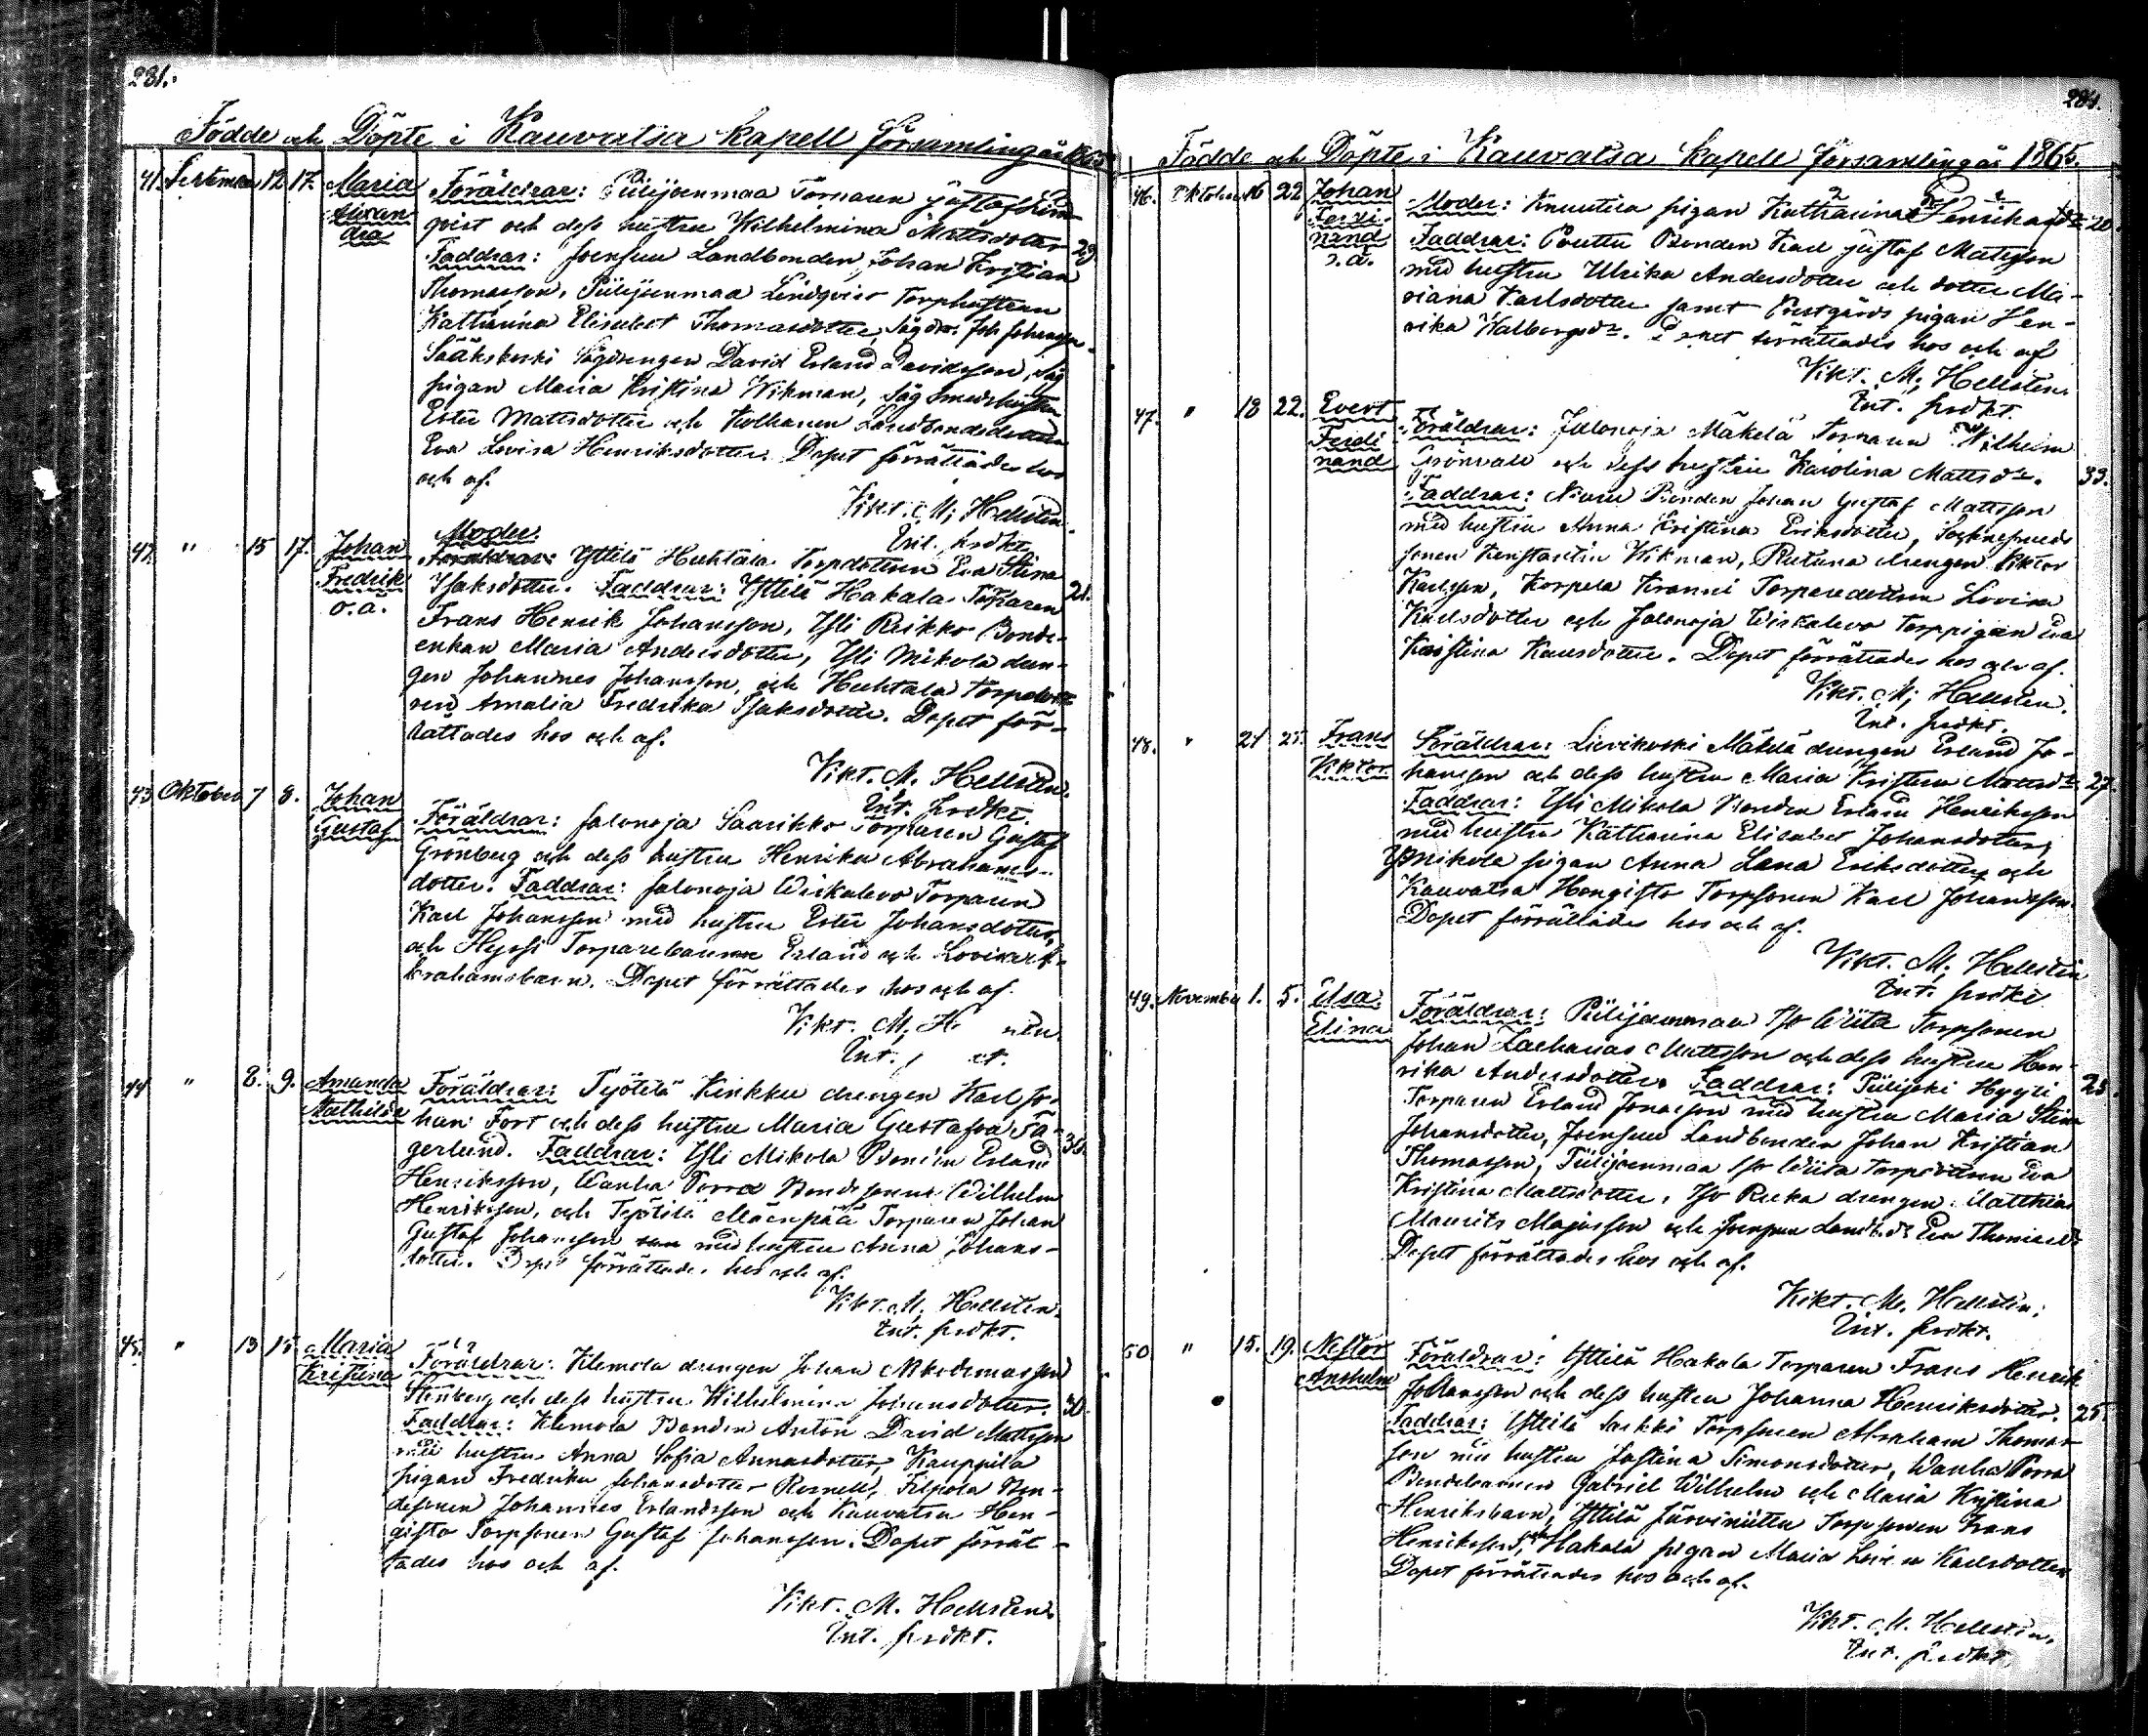 231.
Födde och Döpte i Kauvatsa Kapell församlingår 1865
41. September 12 17. Maria Föräldrar: Piilijoenmaa Torparen Gustaf Lind-
Alexan- qvist och dess hustru Wilhelmina Mattsdotter 29
dra Faddrar: Joensuu Landbonden Johan Kristian
Thomasson, Piilijoenmaa Lindqvist Torphustrun
Katharina Elisabet Thomasdotter, Sågdr. Joh. Johansson
Sääkskoski Sågdrengen David Erland Davidsson, Såg
pigan Maria Kristina Wikman, Sågsmedshustru
Ester Mattsdotter och Kolhanen Landbondedottren
Eva Lovisa Henriksdotter. Dopet förrättades hos
och af.
Vikt. M. Hellsten.
Ent. predkt.
42. " 15 17. Johan Moder:
Fredrik Föräldrar: Yttilä Huhtala Torpdottren Eva Stina
o.ä. Isaksdotter. Faddrar: Yttilä Hakala Torparen 21.
Frans Henrik Johansson, Yli Reikko Bonde-
enkan Maria Andersdotter, Yli Mikola dren-
gen Johannes Johansson, och Huhtala Torpdott-
ren Amalia Fredrika Isaksdotter. Dopet för-
rättades hos och af.
Vikt. M. Hellsten.
Ent. predkt.
43 Oktober 7 8. Johan
Gustaf Föräldrar: Jalonoja Saarikko Torparen Gustaf
Grönberg och dess hustru Henrika Abrahams-
dotter. Faddrar: Jalonoja Wiskalevo Torparen
Karl Johansson med hustru Ester Johansdotter,
och Hyrsi Torparebarnen Erland och Lovisa A-
brahamsbarn. Dopet förrättades hos och af.
Vikt. M. H nen
Ent. p kt.
44 " 8. 9. Amanda Föräldrar: Työtilä Kinkku drengen Karl Jo-
Mathilda han Fort och dess hustru Maria Gustafva Fa-
gerlund. Faddrar: Yli Mikola Bonden Erland 36.
Henriksson, Wanha Porra Bondesonen Wilhelm
Henriksson, och Työtilä Mäenpää Torparen Johan
Gustaf Johansson med hustru Anna Johans-
dotter. Dopet förrättades hos och af.
Vikt. M. Hellsten.
Ent. predkt.
45. " 13 15 Maria
Kristina Föräldrar: Klemola drengen Johan Nikodemasson
Stenberg och dess hustru Wilhelmina Johansdotter. 30.
Faddrar: Klemola Bonden Anton David Mattsson
med hustru Anna Sofia Annasdotter, Kauppila
pigan Fredrika Johansdotter Rosnell, Filpola Bon-
desonen Johannes Erlandsson och Kauvatsa Hon-
gisto Torpsonen Gustaf Johansson. Dopet förrät-
tades hos och af.
Vikt. M. Hellsten.
Ent. predkt.
231.
Födde och Döpte i Kauvatsa Kapell församlingår 1865.
46. Oktober 16 22 Johan Moder: Knuutila pigan Katharina Henriksdr 20.
Ferdi- Faddrar: Pouttu Bonden Karl Gustaf Mattsson
nand med hustru Ulrika Andersdotter och dotter Ma-
o.ä. riana Karlsdotter samt Prestgårds pigan Hen-
rika Walborgsdr. Dopet förrättades hos och af
Vikt. M. Hellsten
Ent. predkt.
47. " 18 22. Evert
Ferdi Föräldrar: Jalonoja Mäkelä Torparen Wilhelm
nand Grönvall och dess hustru Karolina Mattsdr. 33.
Faddrar: Bonden Johan Gustaf Mattsson
med hustru Anna Kristina Eriksdotter, Sockensmeds
sonen Konstantin Wikman, drengen Viktor
Karlsson, Korpela Kranni Torparedottren Lovisa
Karlsdotter och Jalonoja Wiskalevo Torppigan Eva
Kristina Karlsdotter. Dopet förrättades hos och af.
Vikt. M. Hellsten.
Ent. predkt.
48. " 21 25. Frans Föräldrar: Lievikoski Mäkelä drengen Erland Jo-
Viktor hansson och dess hustru Maria Kristina Mattsdr 27.
Faddrar: Yli Mikola Bonden Erland Henriksson
med hustru Katharina Elisabet Johansdotter,
Yli Mikola pigan Anna Lena Eriksdotter och
Kauvatsa Hongisto Torpsonen Karl Johansson.
Dopet förrättades hos och af.
Vikt. M. Hellsten
Ent. predkt
49. November 1. 5. Elsa Föräldrar: Piilijoenmaa Iso Wiita Torpsonen
Elina Johan Zacharias Mattsson och dess hustru Hen-
rika Andersdotter. Faddrar: Piilijoki Hyyti 23.
Torparen Erland Jonasson med hustru Maria Stina
Johansdotter, Joensuu Landbonden Johan Kristian
Thomasson, Piilijoenmaa Iso Wiita Torpdottren Eva
Kristina Mattsdotter, Iso Reeka drengen Matthias
Maurits Majasson och Joensuu Landb.dr Eva Thomasdr
Dopet förrättades hos och af.
Vikt. M. Hellsten.
Ent. predkt.
50 " 15. 19. Nestor Föräldrar: Yttilä Hakala Torparen Frans Henrik
Anshelm Johansson och dess hustru Johanna Henriksdotter. 25.
Faddrar: Yttilä Torpsonen Abraham Thomas-
son med hustru Justina Simonsdotter, Wanha Porra
Bondebarnen Gabriel Wilhelm och Maria Kristina
Henriksbarn, Yttilä Järviniittu Torpsonen Frans
Henriksson, och Hakala pigan Maria Lovisa Karlsdotter
Dopet förrättades hos och af.
Vikt. M. Hellsten.
Ent. predkt